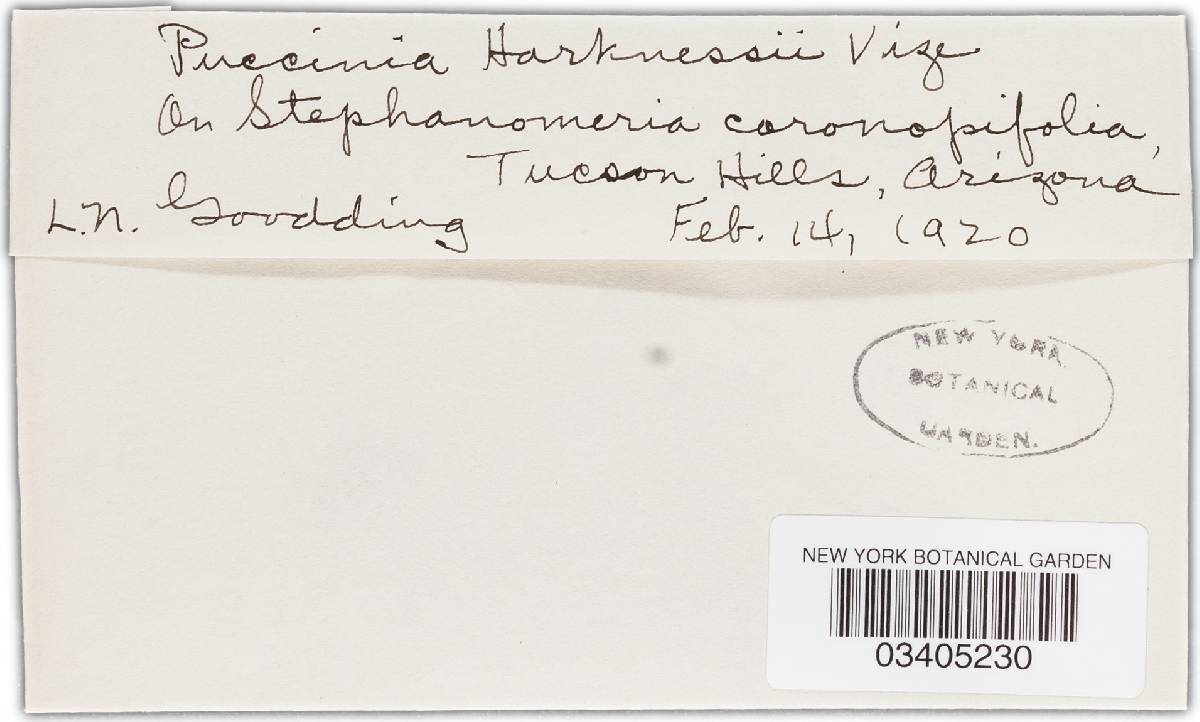 Puccinia Harknessii Vize
On Stephanomeria coronopifolia,
Tucson Hills, Arizona
L.N. Goodding Feb. 14, 1920
NEW YORK
BOTANICAL
GARDEN.
NEW YORK BOTANICAL GARDEN
03405230